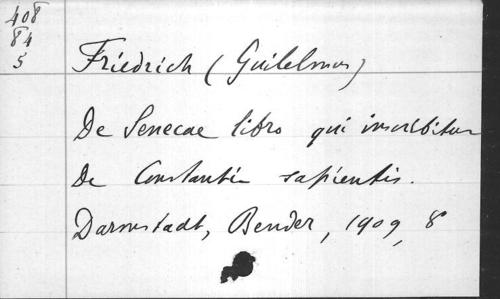 408
84
5
Friedrich (Guilelmus)
De Senecae libro qui inscribitur
De Constantia sapientis.
Darmstadt, Bender, 1909, 8